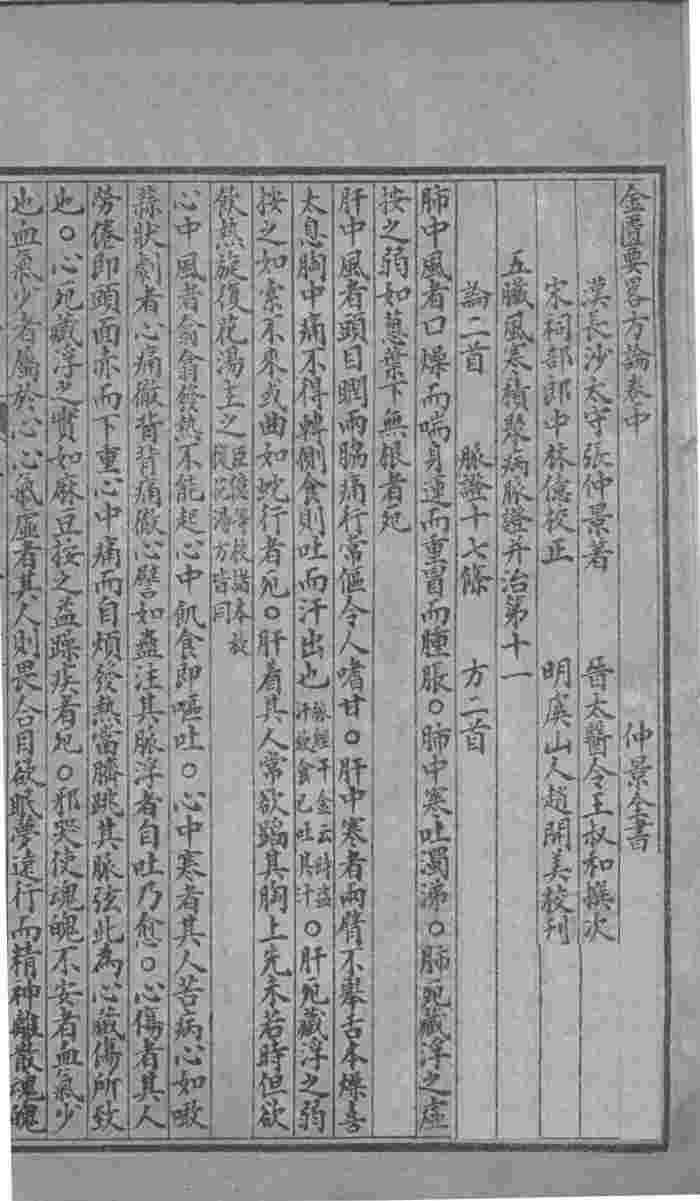 金匱要畧方論卷中　　　仲景全書
漢長沙太守張仲景著　　晉太醫令王叔和撰次
宋祠部郎中林億校正　　明虞山人趙開美校刊
五臟風寒積聚病脈證并治第十一
論二首　　脈證十七條　　方二首
肺中風者口燥而喘身運而重冒而腫脹○肺中寒吐濁涕○肺死藏浮之虛
按之弱如葱葉下無根者死
肝中風者頭目瞤兩脇痛行常傴令人嗜甘○肝中寒者兩臂不舉舌本燥喜
太息胸中痛不得轉側食則吐而汗出也脉經千金云時盜汗欬食已吐其汁○肝死藏浮之弱
按之如索不來或曲如蛇行者死○肝着其人常欲蹈其胸上先未若時但欲
飲熱旋復花湯主之臣億等校諸本旋復花湯方皆同
心中風者翕翕發熱不能起心中飢食即嘔吐○心中寒者其人苦病心如噉
蒜狀劇者心痛徹背背痛徹心譬如蠱注其脈浮者自吐乃愈○心傷者其人
勞倦即頭面赤而下重心中痛而自煩發熱當臍跳其脈弦此為心臟傷所致
也○心死藏浮之實如麻豆按之益躁疾者死○邪哭使魂魄不安者血氣少
也血氣少者屬於心心氣虛者其人則畏合目欲眠夢遠行而精神離散魂魄